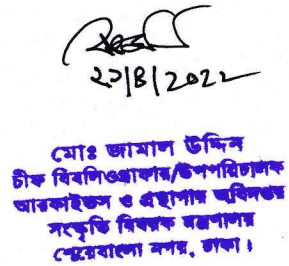 ২১/৪/2022
মোঃ জামাল উদ্দিন
চীফ বিবলিওগ্রাফার/উপপরিচালক
আরকাইভস ও গ্রন্থাগার অধিদপ্তর
সংস্কৃতি বিষয়ক মন্ত্রণালয়
শেরেবাংলা নগর, ঢাকা।